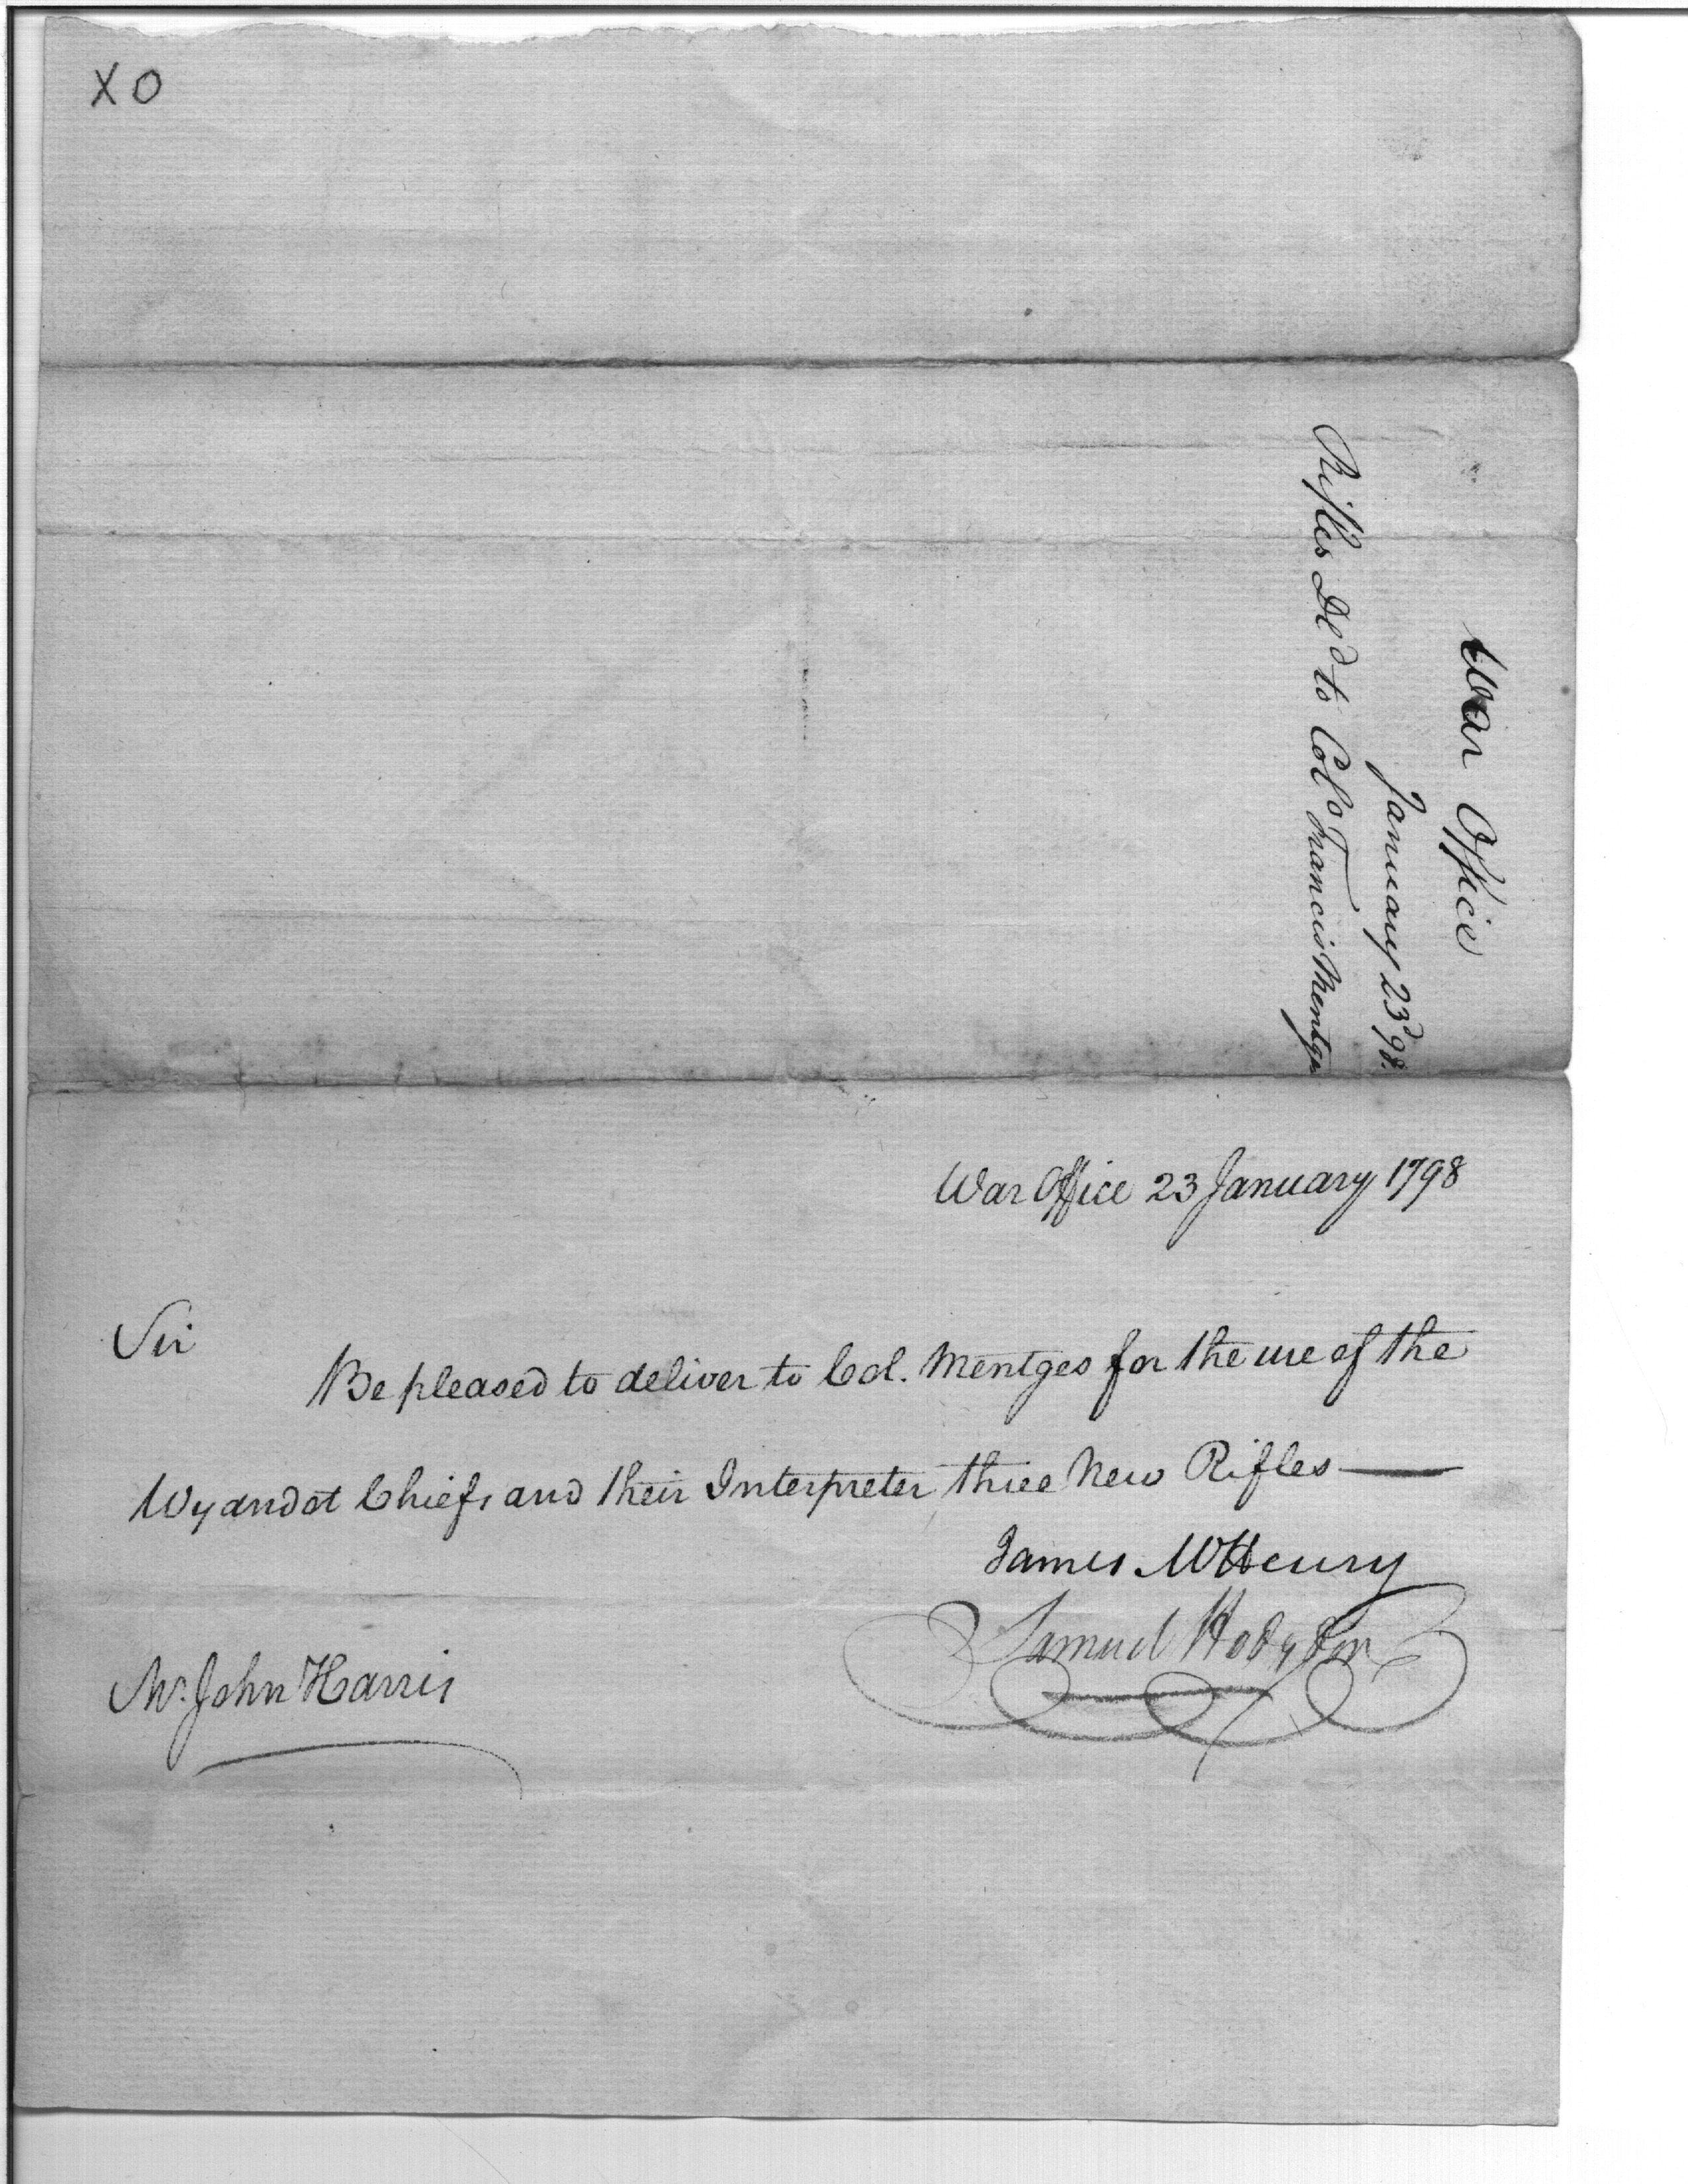 X O
War Office
January 23d 98.
Rifles Ded to Colo Francis Mentges
War Office 23 January 1798
Sir
Be pleased to deliver to Col. Mentges for the use of the
Wyandot Chiefs and their Interpreter three New Rifles —
James McHenry
Samuel Hodgdon
Mr. John Harris